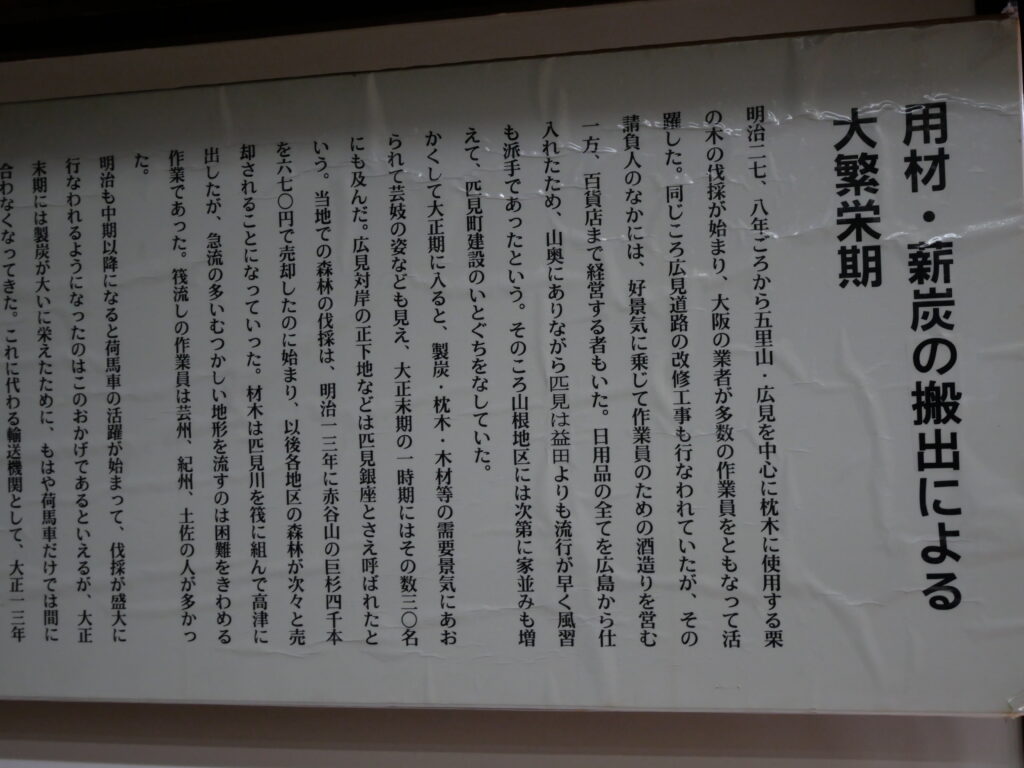 用材・薪炭の搬出による
大繁栄期
明治二七、八年ごろから五里山・広見を中心に枕木に使用する栗
の木の伐採が始まり、大阪の業者が多数の作業員をともなって活
躍した。同じころ広見道路の改修工事も行なわれていたが、その
請負人のなかには、好景気に乗じて作業員のための酒造りを営む
一方、百貨店まで経営する者もいた。日用品の全てを広島から仕
入れたため、山奥にありながら匹見は益田よりも流行が早く風習
も派手であったという。そのころ山根地区には次第に家並みも増
えて、匹見町建設のいとぐちをなしていた。
かくして大正期に入ると、製炭・枕木・木材等の需要景気にあお
られて芸妓の姿なども見え、大正末期の一時期にはその数三〇名
にも及んだ。広見対岸の正下地などは匹見銀座とさえ呼ばれたと
いう。当地での森林の伐採は、明治一三年に赤谷山の巨杉四千本
を六七〇円で売却したのに始まり、以後各地区の森林が次々と売
却されることになっていった。材木は匹見川を筏に組んで高津に
出したが、急流の多いむつかしい地形を流すのは困難をきわめる
作業であった。筏流しの作業員は芸州、紀州、土佐の人が多かっ
た。
明治も中期以降になると荷馬車の活躍が始まって、伐採が盛大に
行なわれるようになったのはこのおかげであるといえるが、大正
末期には製炭が大いに栄えたために、もはや荷馬車だけでは間に
合わなくなってきた。これに代わる輸送機関として、大正一三年